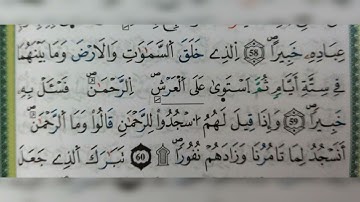 عِبَادِهِۦ خَبِيراًۖ 58 اِ۬لذِے خَلَقَ اَ۬لسَّمَٰوَٰتِ وَالَارْضَ وَمَا بَيْنَهُمَا
فِے سِتَّةِ أَيَّامٖ ثُمَّ اَ۪سْتَو۪يٰ عَلَي اَ۬لْعَرْشِۖ اِ۬لرَّحْمَٰنُۖ فَسْـَٔلْ بِهِۦ
خَبِيراٗۖ 59 وَإِذَا قِيلَ لَهُمُ اُ۟سْجُدُواْ لِلرَّحْمَٰنِ قَالُواْ وَمَا اَ۬لرَّحْمَٰنُۖ
أَنَسْجُدُ لِمَا تَامُرُنَا وَزَادَهُمْ نُفُوراٗۖ ۩ 60 تَبَٰرَكَ اَ۬لذِے جَعَلَ